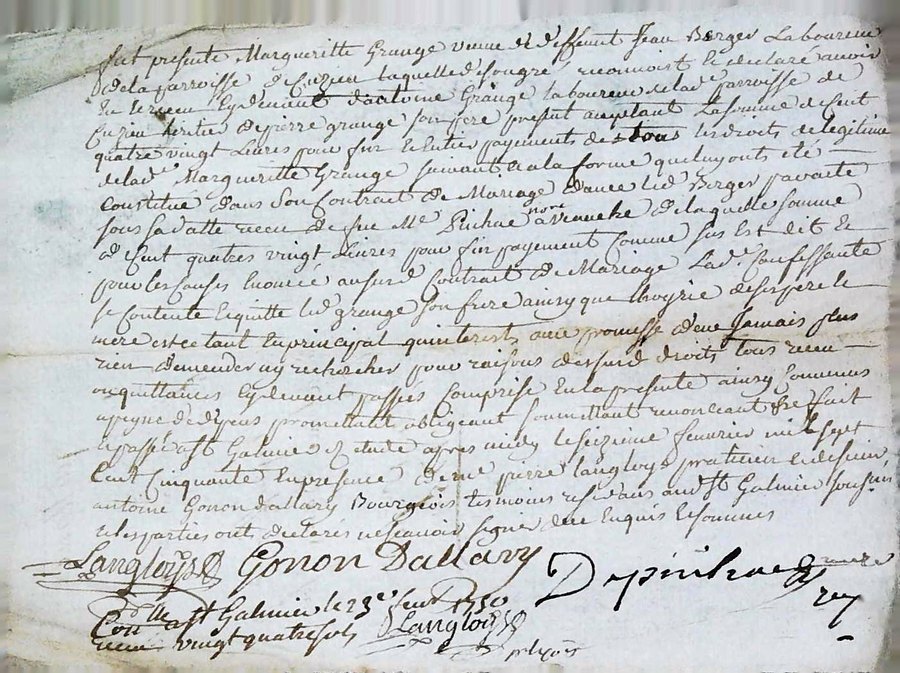 fut presente Margueritte Grange veuve de deffunt Jean Berger Laboureur
de la parroisse de Cuzieu laquelle de son gré reconnoist et declaré avoir
du receu cydevant d'antoine Grange laboureur de lad.e parroisse de
Cuzieu heritier de pierre grange son pere present acceptant La somme de Cent
quatre vingt Livres pour fin et entier payement de tous les droits de legitime
de lad.e Margueritte Grange suivant et a la forme quil luy ont eté
constitué dans Son Contrat de Mariage d'avec led. Berger pavant
sous sa datte receu de feu Me Pinhac nore a Veauche de laquelle somme
de Cent quatres vingt Livres pour fin payement Comme sus Est dit Et
pour les Causes Enoncée au susd. Contrat de Mariage Lad. Confessante
se Contente Et quitte led. grange son frere ainsy que l'hoyrie de ses pere Et
mere est ce tant En principal qu'interests avec promesse d'en Jamais plus
rien demender ny rechercher pour raisons desusd. droits tous receu
ou quittances Cydevant passés Comprise En la presente ainsy Convenus
a peyne de depens promettant obligeant soumettant renonceant &c fait
et passé a St Galmier Etude apres midy le seizieme fevrier mil sept
Cent Cinquante En presence de me pierre langloys praticien et de sieur
antoine Gonon dallary Bourgeois temoins residans aud. St Galmier soussig.
et les parties ont declarés ne scavoir signer de ce Enquis Et sommes
Langloys Gonon Dallary
Depinhac nore
rey
Con.lle a St Galmier le 23e feuv 1750
receu vingt quatre sols Langloys